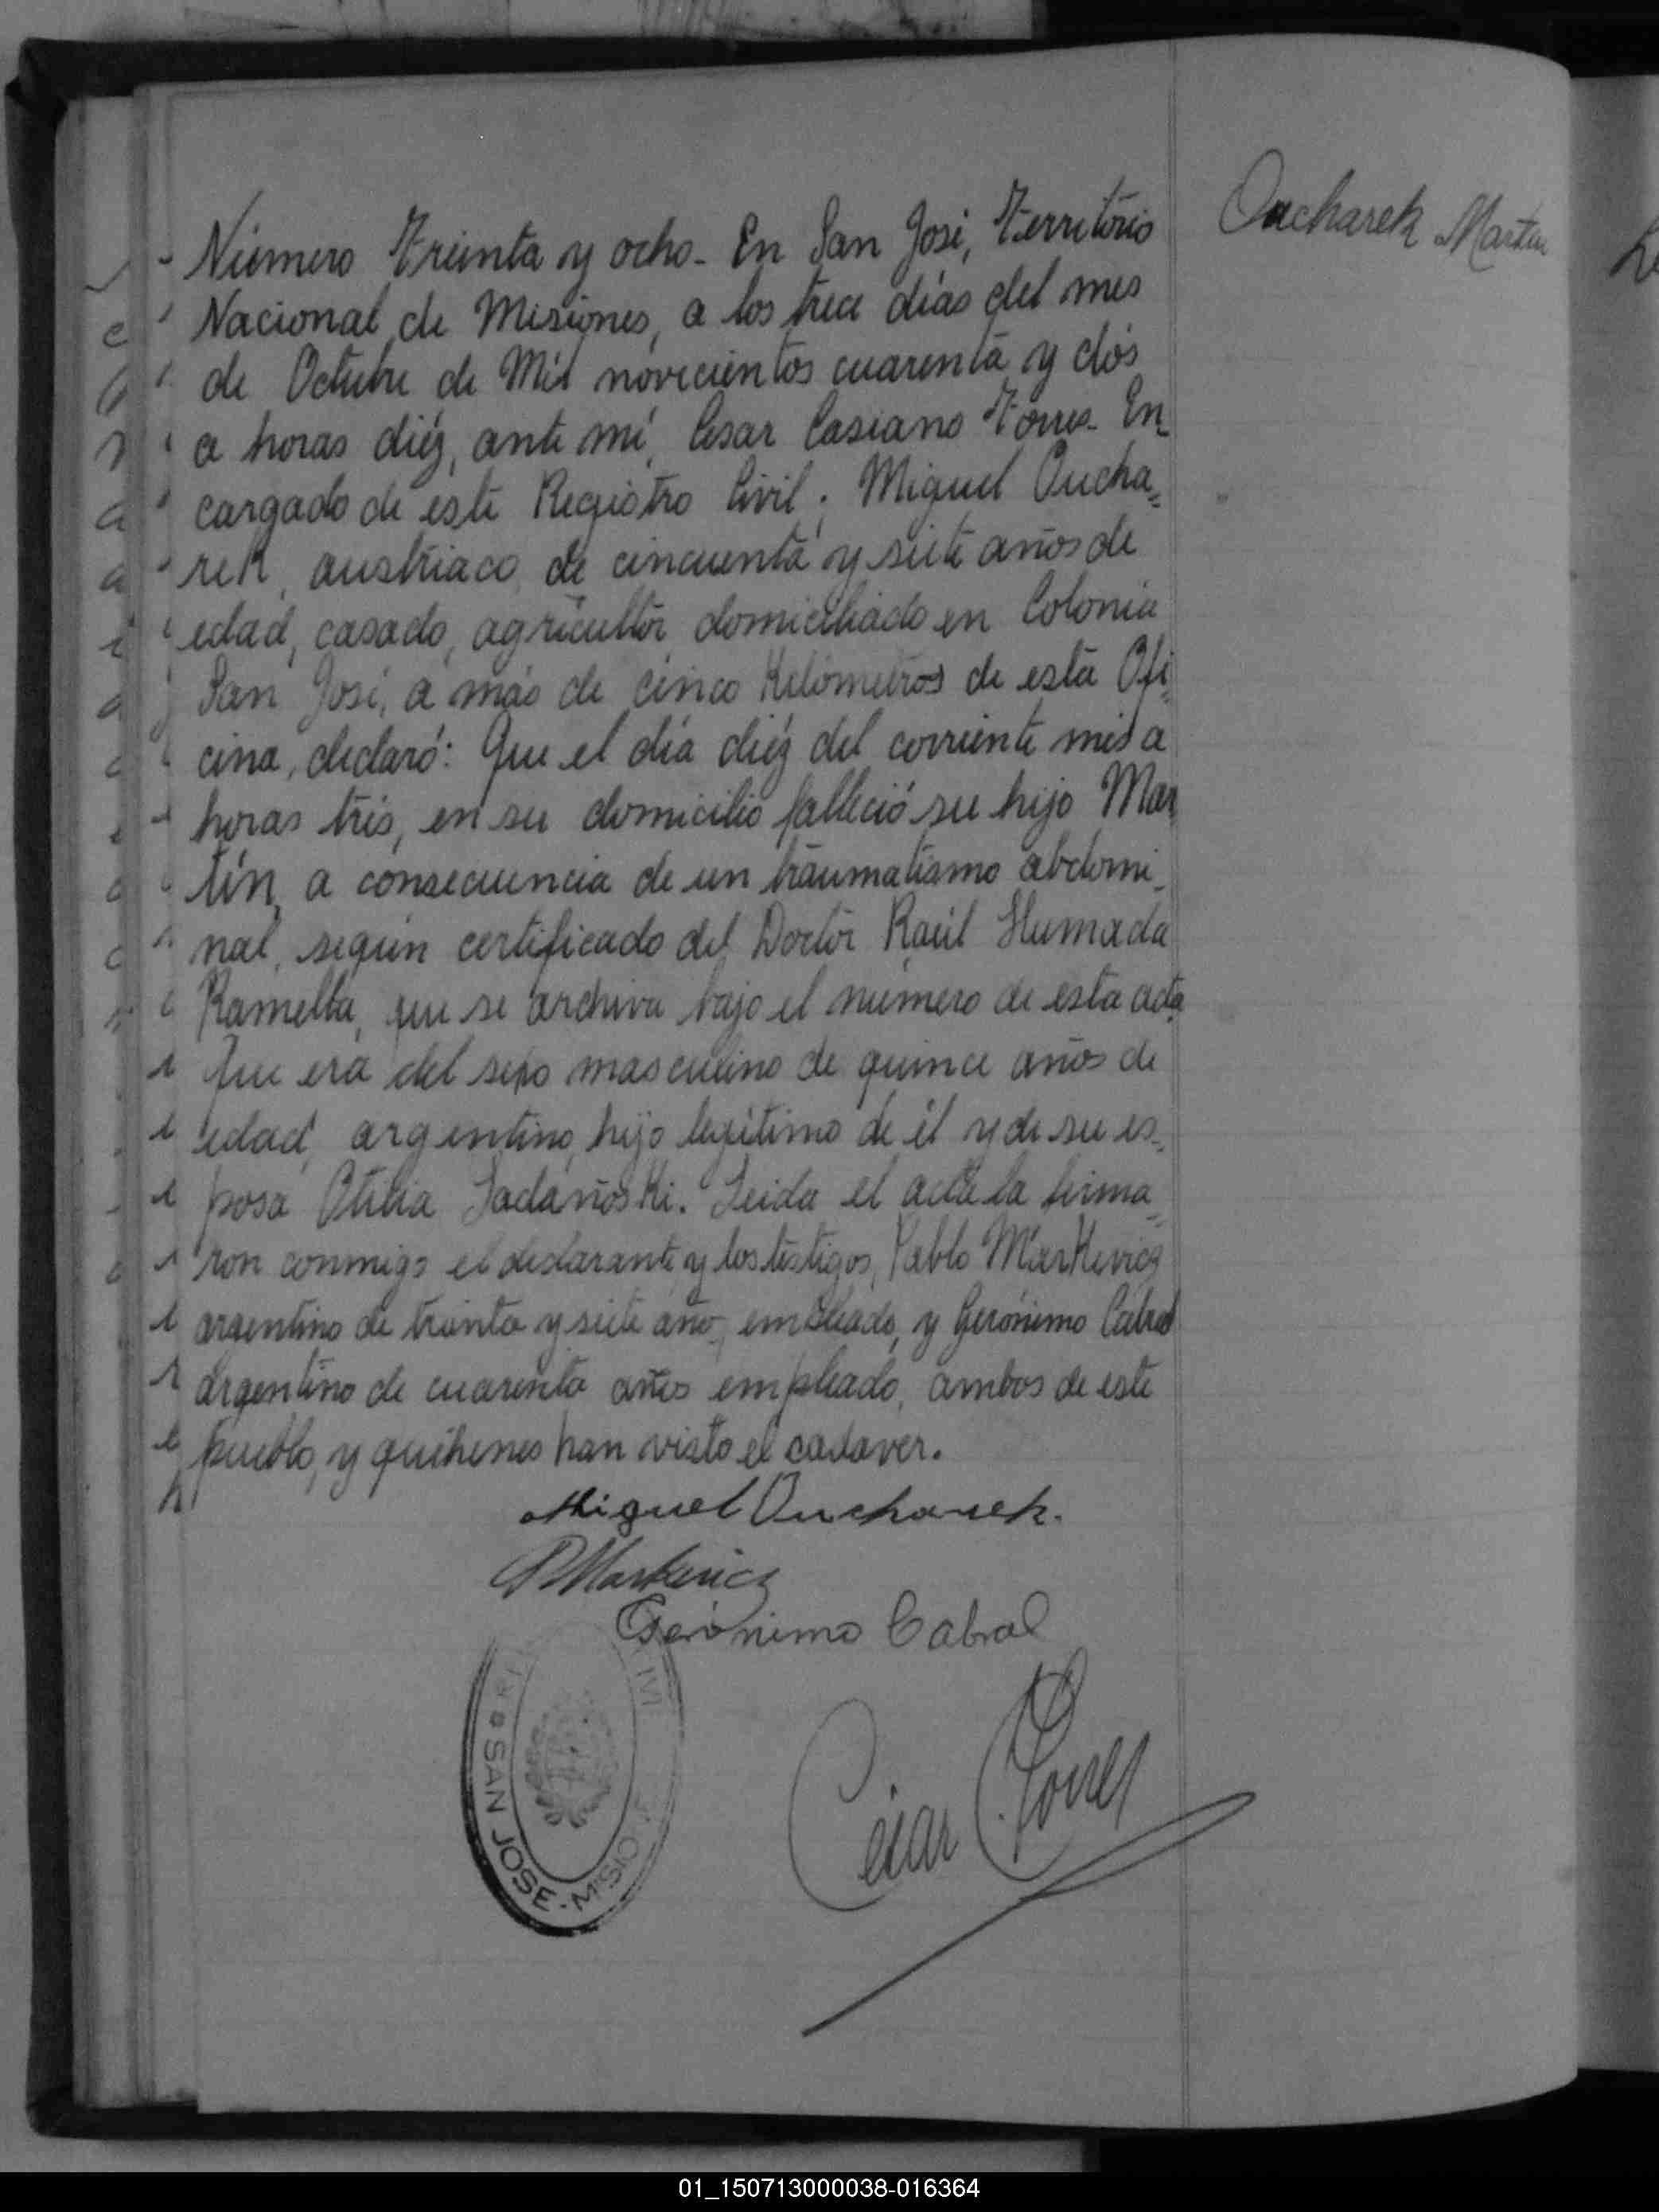 Oucharek Martin
Número Treinta y ocho - En San José, Territorio
Nacional de Misiones, a los trece días del mes
de Octubre de Mil novecientos cuarenta y dós
a horas diéz, ante mí, Cesar Casiano Torres - En_
cargado de este Registro Civil; Miguel Oucha=
rek, austriaco, de cincuenta y siete años de
edad, casado, agricultor domiciliado en Colonia
San José, a más de cinco Kilómetros de esta Ofi=
cina, declaró: Que el día diéz del corriente mes a
horas trés, en su domicilio falleció su hijo Mar
tín, a consecuencia de un traumatismo abdomi_
nal, según certificado del Doctor Raúl Humada
Ramella, que se archiva bajo el número de esta acta
Que era del sexo masculino de quince años de
edad, argentino, hijo legítimo de él y de su es_
posa Otilia Sadañoski. Leida el acta la firma=
ron conmigo el declarante y los testigos, Pablo Markevicz
argentino de treinta y siete año, empleado, y Gerónimo Cabral
argentino de cuarenta años empleado, ambos de este
pueblo, y quihenes han visto el cadaver.
Miguel Oucharek.
P Markevicz
Gerónimo Cabral
SAN JOSE - MISIO
César C. Torres
01_150713000038-016364